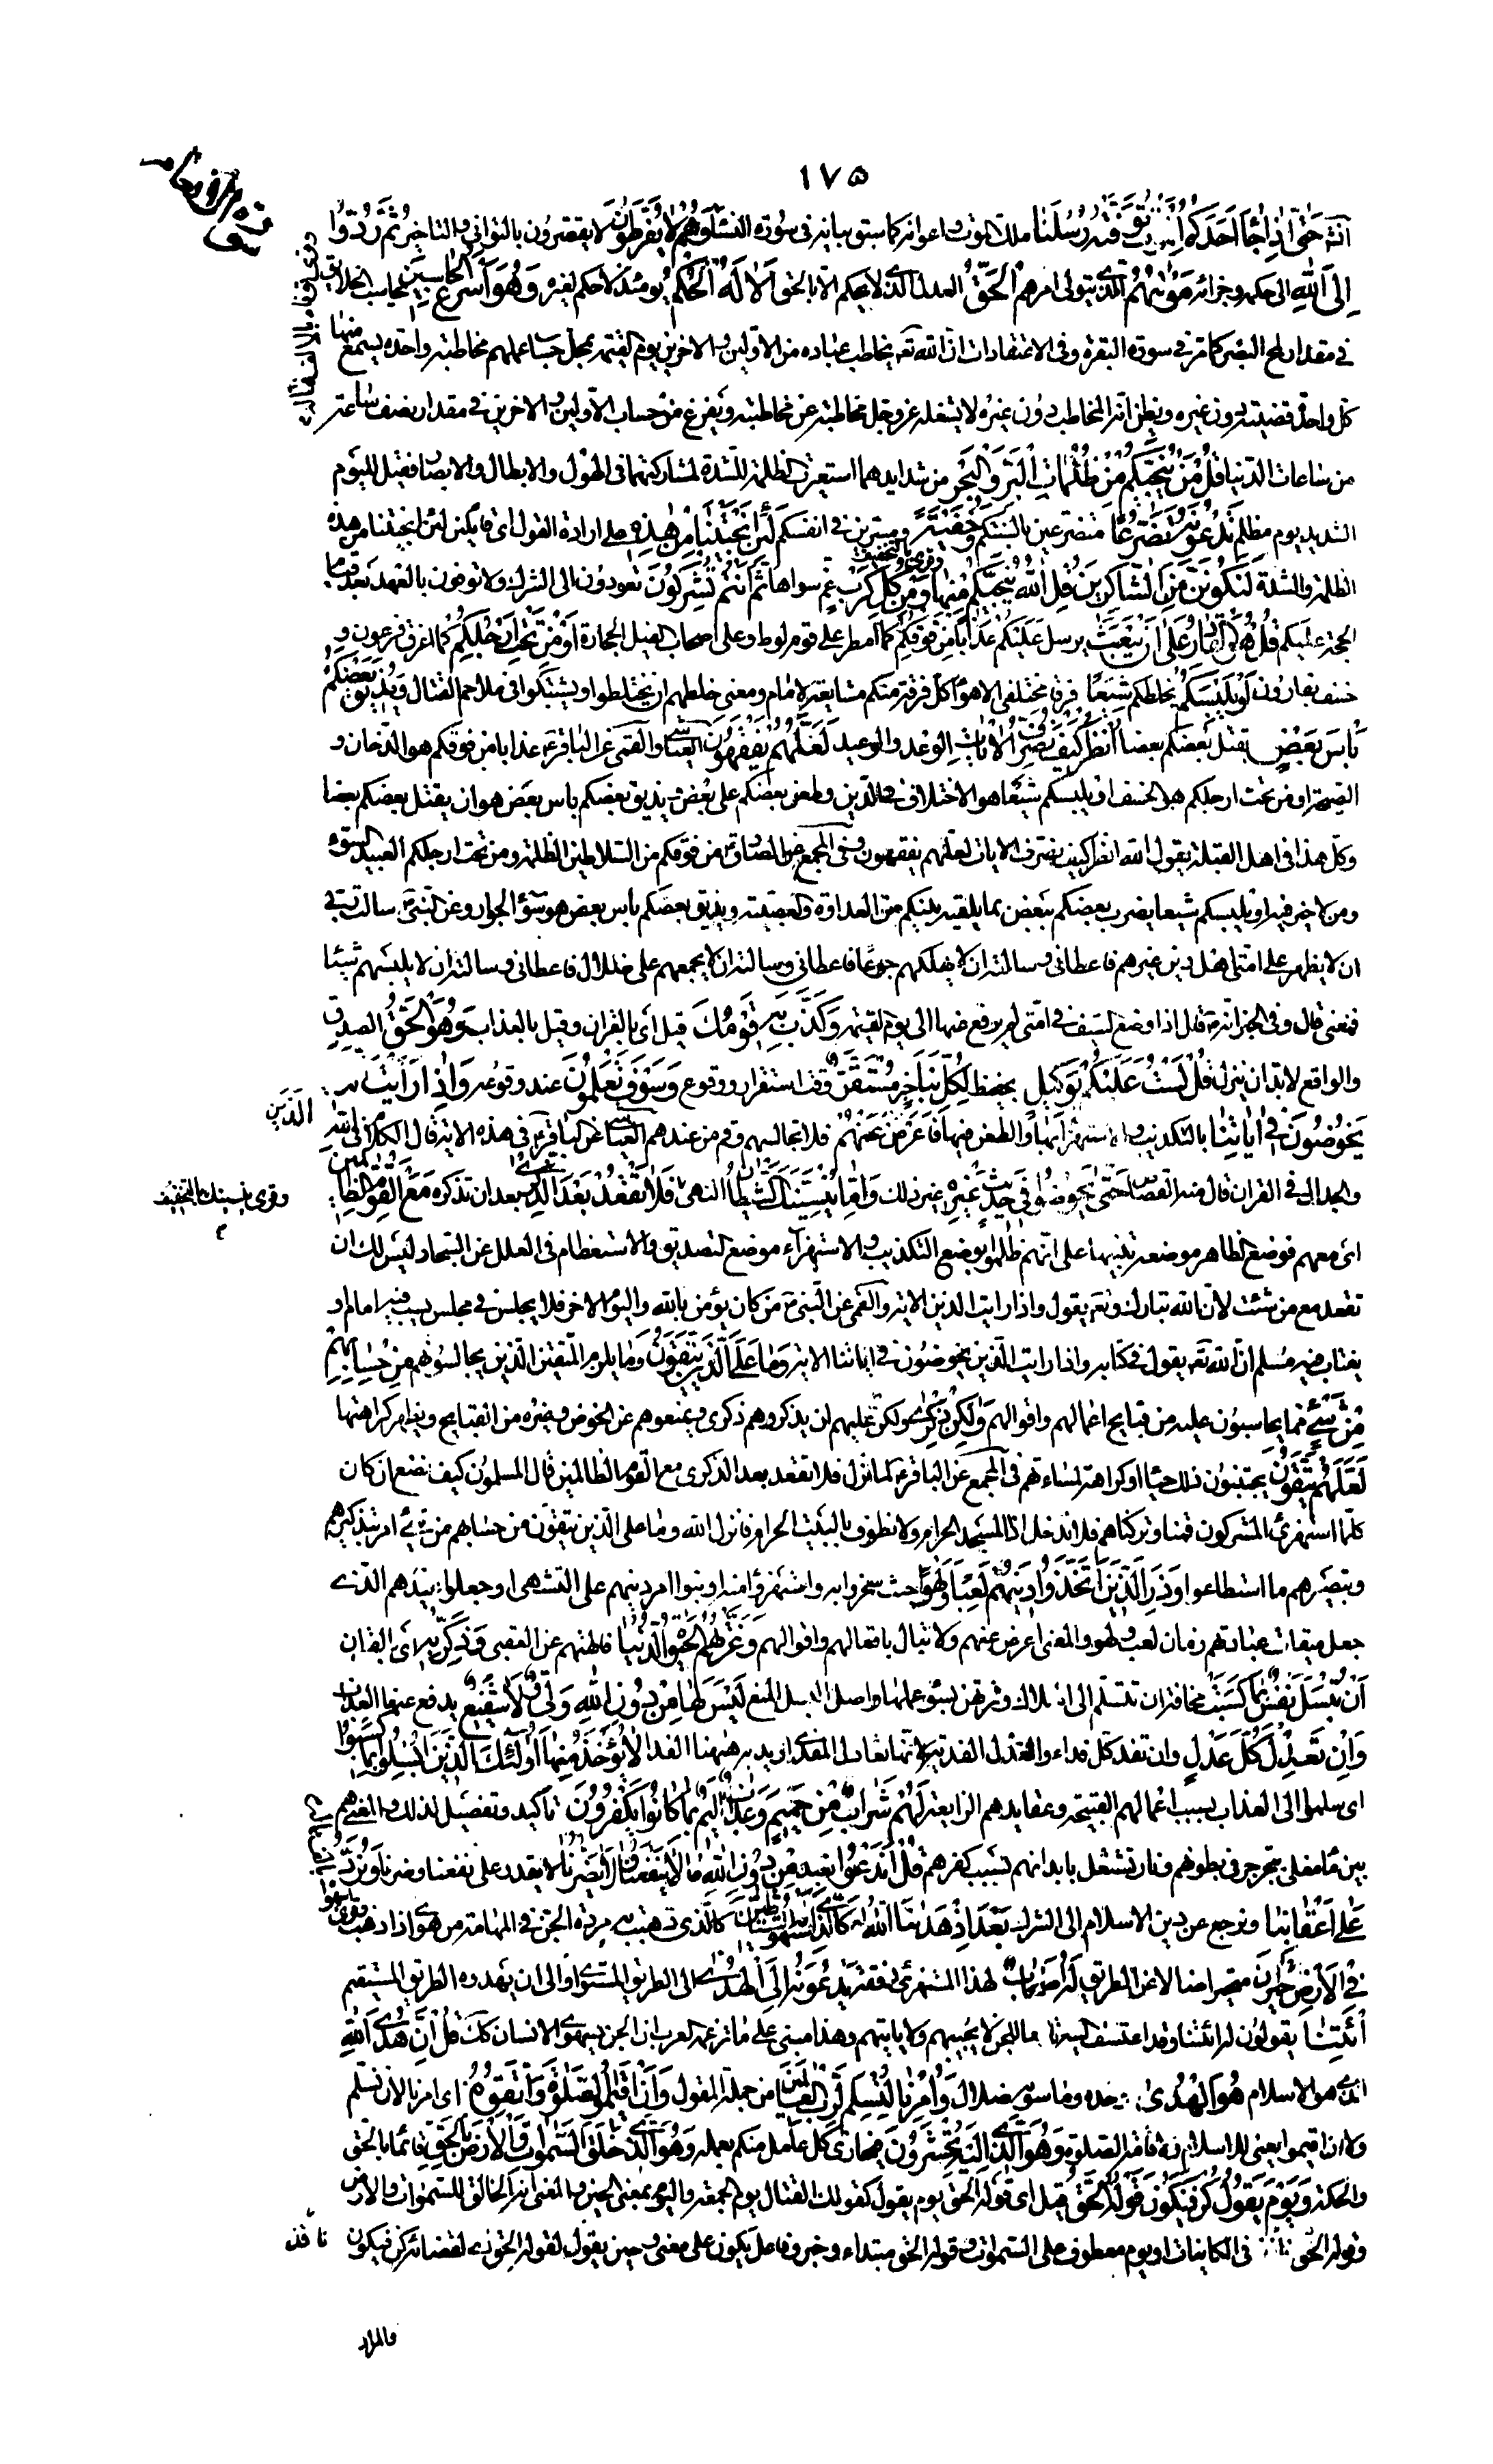 ١٧٥
حَتّىٰ اِذٰا جٰٓاءَ اَحَدَكُمُ الْمَوْتُ تَوَفَّتْهُ رُسُلُنٰا ملك الموت واعوانه كما سبق بيانه فى سورة النساء وَهُمْ لاٰ يُفَرِّطُونَ لا يقصّرون بالتوانى والتاخير ثُمَّ رُدُّوٓا
اِلَى اللهِ الى حكمه وجزائه مَوْلٰيهُمُ الذى يتولى امرهم الْحَقِّ العدل الذى لا يحكم الا بالحق اَلاٰ لَهُ الْحُكْمُ يومئذ لا حكم لغيره وَهُوَ اَسْرَعُ الْحٰاسِبِينَ يحاسب الخلايق
فى مقدار لمح البصر كما مرّ فى سورة البقرة وفى الاعتقادات ان الله تع يخاطب عباده من الاولين والاخرين يوم القيمة بمجمل حساب عملهم مخاطبة واحدة يسمع منها
كل واحد قضيته دون غيره ويظن انه المخاطب دون غيره لا يشغله عز وجل مخاطبة عن مخاطبة ويفرغ من حساب الاولين والاخرين فى مقدار نصف ساعة
من ساعات الدنيا قُلْ مَنْ يُنَجِّيكُمْ مِنْ ظُلُمٰاتِ الْبَرِّ وَالْبَحْرِ من شدايدهما استعيرت الظلمة للشدة لمشاركتهما فى الهول وابطال الابصار فقيل لليوم
الشديد يوم مظلم تَدْعُونَهُ تَضَرُّعًا متضرعين بالسنتكم وَخُفْيَةً ومسرّين فى انفسكم لَئِنْ اَنْجَيْتَنٰا مِنْ هٰذِهِ على ارادة القول اى قايلين لئن انجيتنا من هذه
وقرئ بالتخفيف
الظلمة والشدة لَنَكُونَنَّ مِنَ الشّٰاكِرِينَ قُلِ اللهُ يُنَجِّيكُمْ مِنْهٰا وَمِنْ كُلِّ كَرْبٍ غم سواها ثُمَّ اَنْتُمْ تُشْرِكُونَ تعودون الى الشرك ولا توفون بالعهد بعد قيام
الحجة عليكم قُلْ هُوَ الْقٰادِرُ عَلىٰ اَنْ يَبْعَثَ يرسل عَلَيْكُمْ عَذٰابًا مِنْ فَوْقِكُمْ كما امطر على قوم لوط وعلى اصحاب الفيل الحجارة اَوْ مِنْ تَحْتِ اَرْجُلِكُمْ كما اغرق فرعون و
خسف بقارون اَوْ يَلْبِسَكُمْ يخلطكم شِيَعًا فرقا مختلفى الاهواء كل فرقة منكم مشايعة لامام ومعنى خلطهم ان يختلطوا ويشتبكوا فى ملاحم القتال وَيُذِيقَ بَعْضَكُمْ
بَأْسَ بَعْضٍ يقتل بعضكم بعضا اُنْظُرْ كَيْفَ نُصَرِّفُ الْاٰيٰاتِ بالوعد والوعيد لَعَلَّهُمْ يَفْقَهُونَ العياشى والقمى عن الباقر ع عذابا من فوقكم هو الدخان و
الصيحة او من تحت ارجلكم هو الخسف او يلبسكم شيعا هو الاختلاف فى الدين وطعن بعضكم على بعض ويذيق بعضكم باس بعض هو ان يقتل بعضكم بعضا
وكل هذا فى اهل القبلة يقول الله انظر كيف نصرف الايات لعلهم يفقهون وفى المجمع عن الصادق ع من فوقكم من السلاطين الظلمة ومن تحت ارجلكم العبيد السوء
ومن لا خير فيه او يلبسكم شيعا يضرب بعضكم ببعض بما يلقيه بينكم من العداوة والعصبية ويذيق بعضكم باس بعض هو سوء الجوار وعن النبى ص سالت ربى
ان لا يظهر على امتى اهل دين غيرهم فاعطانى وسالته ان لا يهلكهم جوعا فاعطانى وسالته ان لا يجمعهم على ضلال فاعطانى وسالته ان لا يلبسهم شيعا
فمنعنى قال وفى الخبر انه ص قال اذا وضع السيف فى امتى لم يرفع عنها الى يوم القيمة وَكَذَّبَ بِهِ قَوْمُكَ قيل اى بالقران وقيل بالعذاب وَهُوَ الْحَقُّ الصدق
والواقع لا بد ان ينزل قُلْ لَسْتُ عَلَيْكُمْ بِوَكِيلٍ بحفيظ لِكُلِّ نَبَإٍ خبر مُسْتَقَرٌّ وقت استقرار ووقوع وَسَوْفَ تَعْلَمُونَ عند وقوعه وَاِذٰا رَاَيْتَ
الَّذِينَ
يَخُوضُونَ فِى اٰيٰاتِنٰا بالتكذيب والاستهزاء بها والطعن فيها فَاَعْرِضْ عَنْهُمْ فلا تجالسهم وقم من عندهم العياشى عن الباقر ع فى هذه الاية قال الكلام فى الله
والجدال فى القران قال منه القصاص حَتّىٰ يَخُوضُوا فِى حَدِيثٍ غَيْرِهِ غير ذلك وَاِمّٰا يُنْسِيَنَّكَ الشَّيْطٰانُ النهى فَلاٰ تَقْعُدْ بَعْدَ الذِّكْرىٰ بعد ان تذكره مَعَ الْقَوْمِ الظّٰالِمِينَ
وقرئ ينسينك بالتخفيف م
اى معهم فوضع الظاهر موضعه تنبيها على انهم ظلموا بوضع التكذيب والاستهزاء موضع التصديق والاستعظام فى العلل عن السجاد ليس لك ان
تقعد مع من شئت لان الله تبارك وتع يقول واذا رايت الذين الاية والقمى عن النبى ص من كان يؤمن بالله واليوم الاخر فلا يجلس فى مجلس يسب فيه امام او
يغتاب فيه مسلم ان الله تع يقول فى كتابه واذا رايت الذين يخوضون فى اياتنا الاية وَمٰا عَلَى الَّذِينَ يَتَّقُونَ وما يلزم المتقين الذين يجالسونهم مِنْ حِسٰابِهِمْ
مِنْ شَىْءٍ مما يحاسبون عليه من قبايح اعمالهم واقوالهم وَلٰكِنْ ذِكْرىٰ ولكن عليهم ان يذكروهم ذكرى ويمنعوهم عن الخوض وغيره من القبايح ويظهر كراهتها
لَعَلَّهُمْ يَتَّقُونَ يجتنبون ذلك حياء او كراهة لمساءتهم فى المجمع عن الباقر ع لما نزل فلا تقعد بعد الذكرى مع القوم الظالمين قال المسلمون كيف نصنع ان كان
كلما استهزئ المشركون قمنا وتركناهم فلا ندخل اذا المسجد الحرام ولا نطوف بالبيت الحرام فانزل الله وما على الذين يتقون من حسابهم من شئ امر بتذكيرهم
وتبصيرهم ما استطاعوا وَذَرِ الَّذِينَ اتَّخَذُوا دِينَهُمْ لَعِبًا وَلَهْوًا حيث سخروا به واستهزؤا منه او بنوا امر دينهم على التشهى او جعلوا عيدهم الذى
جعل ميقات عبادتهم زمان لعب ولهو والمعنى اعرض عنهم ولا تبال بافعالهم واقوالهم وَغَرَّتْهُمُ الْحَيٰوةُ الدُّنْيٰا فالهتهم عن العقبى وَذَكِّرْ بِهِ اى بالقران
اَنْ تُبْسَلَ نَفْسٌ بِمٰا كَسَبَتْ مخافة ان تستلم الى الهلاك وترتهن بسوء عملها واصل البسل المنع لَيْسَ لَهٰا مِنْ دُونِ اللهِ وَلِىٌّ وَلاٰ شَفِيعٌ يدفع عنها العذاب
وَاِنْ تَعْدِلْ كُلَّ عَدْلٍ وان تفد كل فداء والعدل الفدية لانها تعادل المفدى اريد به هيهنا الفداء لاٰ يُؤْخَذْ مِنْهٰا اُولٰٓئِكَ الَّذِينَ اُبْسِلُوا بِمٰا كَسَبُوا
اى سلموا الى العذاب بسبب اعمالهم القبيحة وعقايدهم الزايغة لَهُمْ شَرٰابٌ مِنْ حَمِيمٍ وَعَذٰابٌ اَلِيمٌ بِمٰا كٰانُوا يَكْفُرُونَ تاكيد وتفصيل لذلك والمعنى هم
بين ماء مغلى يتجرجر فى بطونهم ونار تشتعل بابدانهم بسبب كفرهم قُلْ اَنَدْعُوا نعبد مِنْ دُونِ اللهِ مٰا لاٰ يَنْفَعُنٰا وَلاٰ يَضُرُّنٰا لا يقدر على نفعنا وضرنا وَنُرَدُّ
عَلىٰٓ اَعْقٰابِنٰا ونرجع عن دين الاسلام الى الشرك بَعْدَ اِذْ هَدٰينَا اللهُ كَالَّذِى اسْتَهْوَتْهُ الشَّيٰاطِينُ كالذى ذهبت به مردة الجن فى المهامة من هوى اذا ذهب
فِى الْاَرْضِ حَيْرٰانَ متحيرا ضالا عن الطريق لَهُٓ اَصْحٰابٌ لهذا المستهوى رفقة يَدْعُونَهُٓ اِلَى الْهُدَى الى الطريق المستوى او الى ان يهدوه الطريق المستقيم
ائْتِنٰا يقولون له ائتنا وقد اعتسف التيه تابعا للجن لا يجيبهم ولا ياتيهم وهذا مبنى على ما تزعمه العرب ان الجن يستهوى الانسان كك قُلْ اِنَّ هُدَى اللهِ
الذى هو الاسلام هُوَ الْهُدىٰ وحده وما سويه ضلال وَاُمِرْنٰا لِنُسْلِمَ لِرَبِّ الْعٰالَمِينَ من جملة المقول وَاَنْ اَقِيمُوا الصَّلوٰةَ وَاتَّقُوهُ اى امرنا لان نسلم
ولان اقيموا يعنى للاسلام ولاقامة الصلوة وَهُوَ الَّذِىٓ اِلَيْهِ تُحْشَرُونَ فيجازى كل عامل منكم بعمله وَهُوَ الَّذِى خَلَقَ السَّمٰوٰاتِ وَالْاَرْضَ بِالْحَقِّ قائما بالحق
والحكمة وَيَوْمَ يَقُولُ كُنْ فَيَكُونُ قَوْلُهُ الْحَقُّ قيل اى قوله الحق يوم يقول كقولك القتال يوم الجمعة واليوم بمعنى الحين والمعنى انه الخالق للسموات والارض
وقوله الحق نافذ فى الكاينات او يوم معطوف على السموات وقوله الحق مبتداء وخبر وفاعل يكون على معنى وحين يقول لقوله الحق اى لقضائه كن فيكون
والمراد